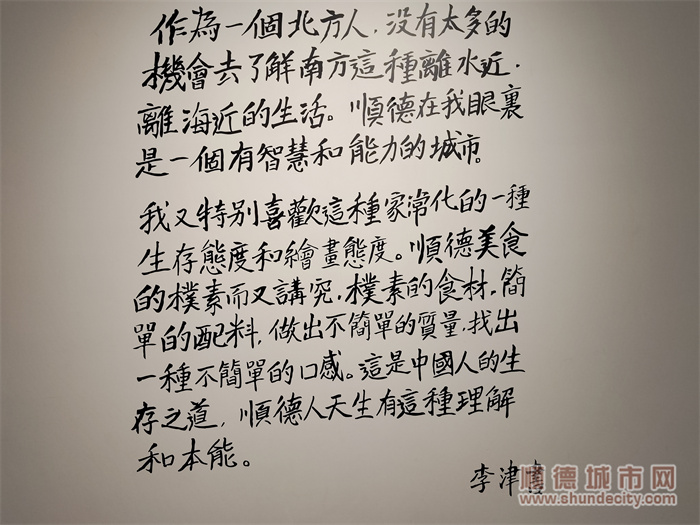 作為一個北方人，没有太多的
機會去了解南方這種離水近，
離海近的生活。順德在我眼裏
是一個有智慧和能力的城市。
我又特别喜歡這種家常化的一種
生存態度和繪畫態度。順德美食
的樸素而又講究，樸素的食材，簡
單的配料，做出不簡單的質量，找出
一種不簡單的口感。這是中國人的生
存之道，順德人天生有這種理解
和本能。
李津書
順德城市网
www.shundecity.com